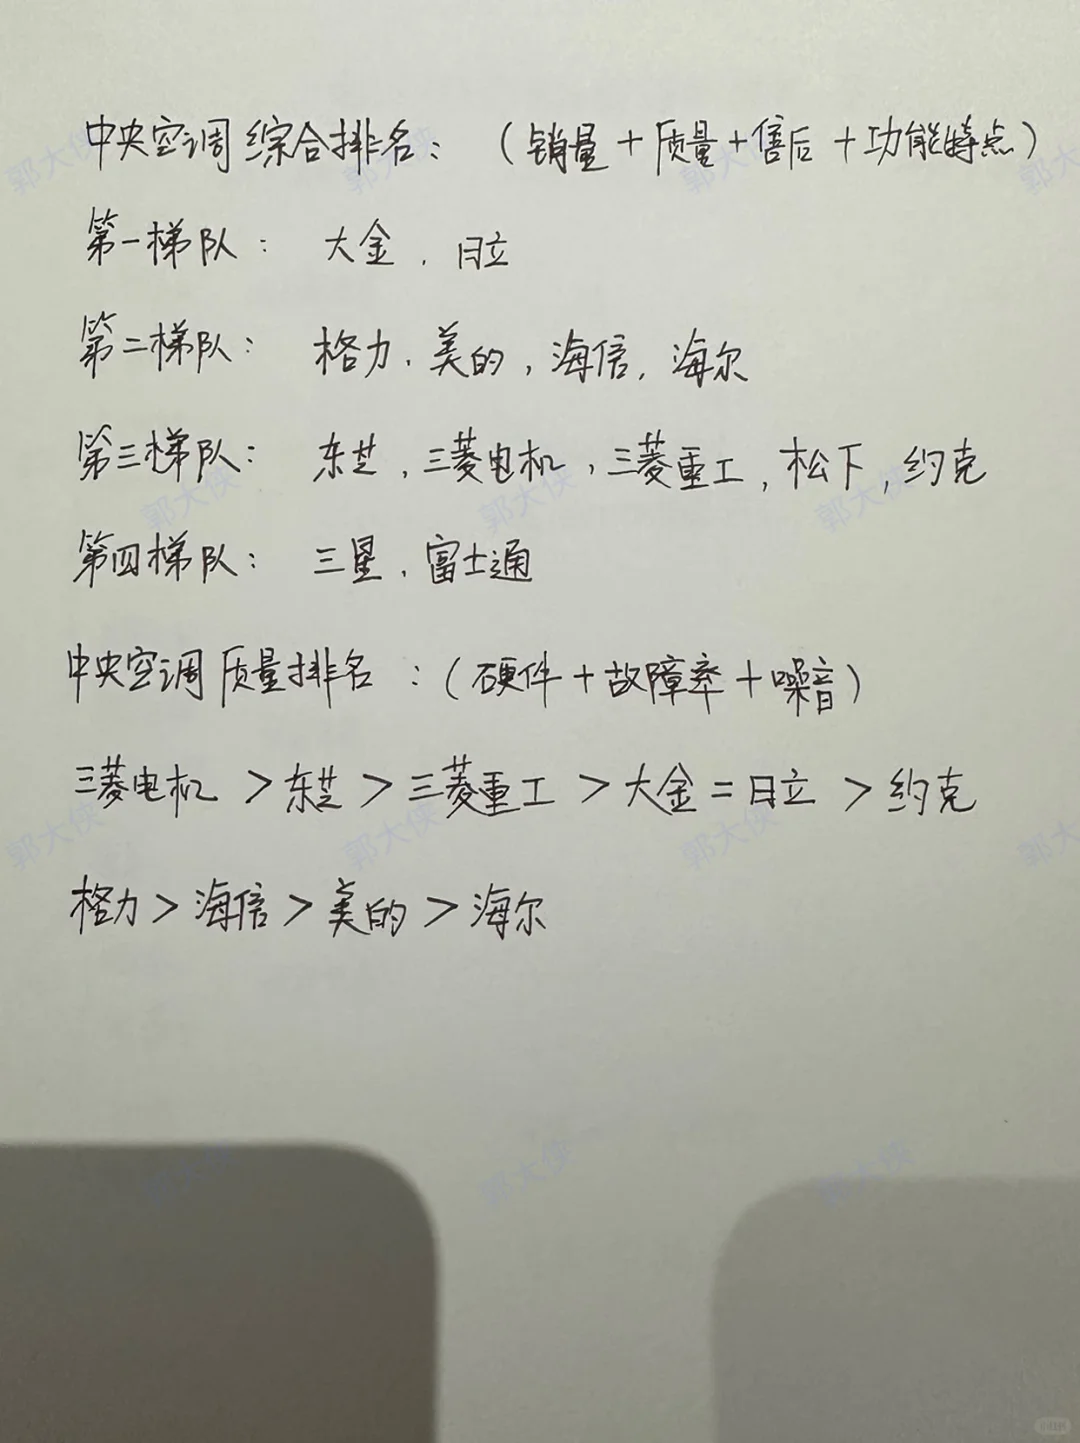 中央空调综合排名：（销量＋质量＋售后＋功能特点）
第一梯队：大金，日立
第二梯队：格力，美的，海信，海尔
第三梯队：东芝，三菱电机，三菱重工，松下，约克
第四梯队：三星，富士通
中央空调质量排名：（硬件＋故障率＋噪音）
三菱电机＞东芝＞三菱重工＞大金＝日立＞约克
格力＞海信＞美的＞海尔
郭大侠
小红书